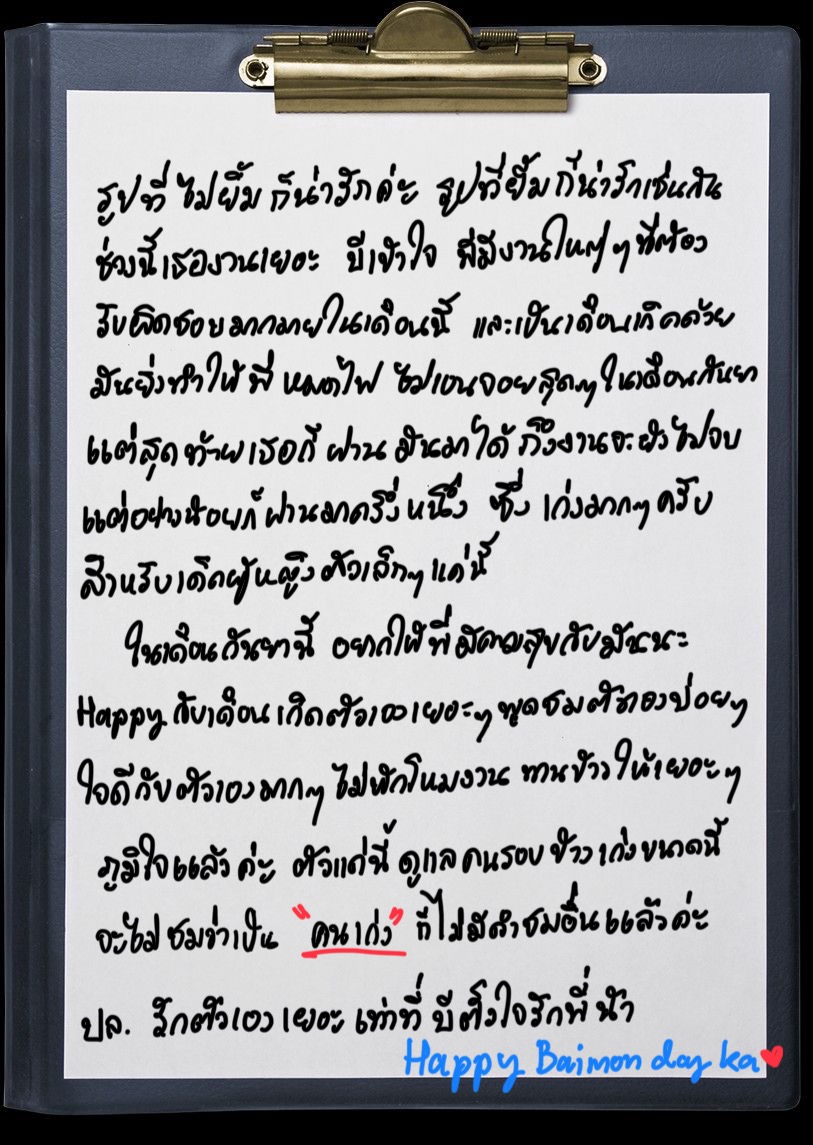 รูปที่ ไม่ยิ้ม ก็น่ารักค่ะ รูปที่ยิ้ม ก็น่ารักเช่นกัน
ช่วงนี้เธองานเยอะ บีเข้าใจ พี่มีงานใหญ่ๆ ที่ต้อง
รับผิดชอบมากมายในเดือนนี้ และเป็นเดือนเกิดด้วย
มันยิ่งทำให้ พี่ หมดไฟ ไม่เอนจอยสุดๆ ในเดือนกันยา
แต่สุดท้ายเธอก็ ผ่าน มันมาได้ ถึงงานจะยังไม่จบ
แต่อย่างน้อยก็ผ่านมาครึ่งหนึ่ง ซึ่ง เก่งมากๆ ครับ
สำหรับเด็กผู้หญิง ตัวเล็กๆ แค่นี้
ในเดือนกันยานี้ อยากให้พี่มีความสุขกับมันนะ
Happy กับเดือนเกิดตัวเองเยอะๆ พูดชมตัวเองบ่อยๆ
ใจดีกับตัวเองมากๆ ไม่หักโหมงาน ทานข้าวให้เยอะๆ
ภูมิใจแล้ว ค่ะ ตัวแค่นี้ ดูแลคนรอบข้างเก่งขนาดนี้
จะไม่ชมว่าเป็น "คนเก่ง" ก็ไม่มีคำชมอื่นแล้วค่ะ
ปล. รักตัวเองเยอะ เท่าที่ บีตั้งใจรักพี่น้ำ
Happy Baimon day ka